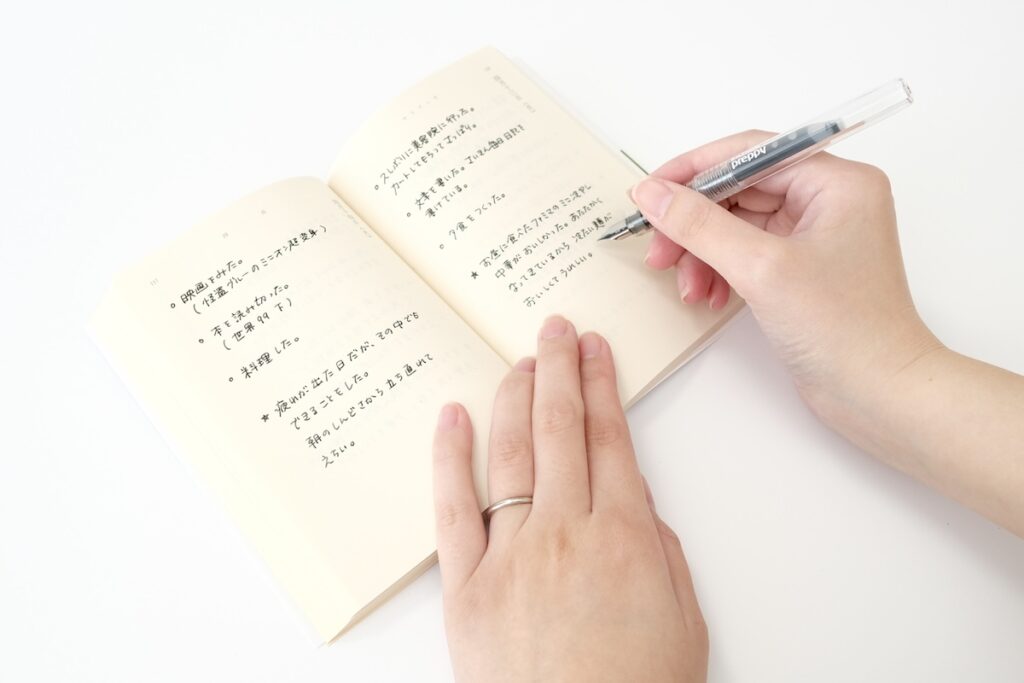 • 映画をみた。
(怪盗グルーのミニオン大変身)
• 本を読み切った。
(世界99 下)
• 料理した。
★ 疲れが出た日だが、その中でも
できることをした。
朝のしんどさから立ち直れて
えらい。
• 久しぶりに美容院に行った。
カットしてもらってさっぱり。
• 文章を書いた。さいきん毎日日記を
書けている。
• 夕食をつくった。
★ お昼に食べたファミマのミニ冷やし
中華がおいしかった。あたたかく
なってきているから、冷たい麺が
おいしくてうれしい。
preppy